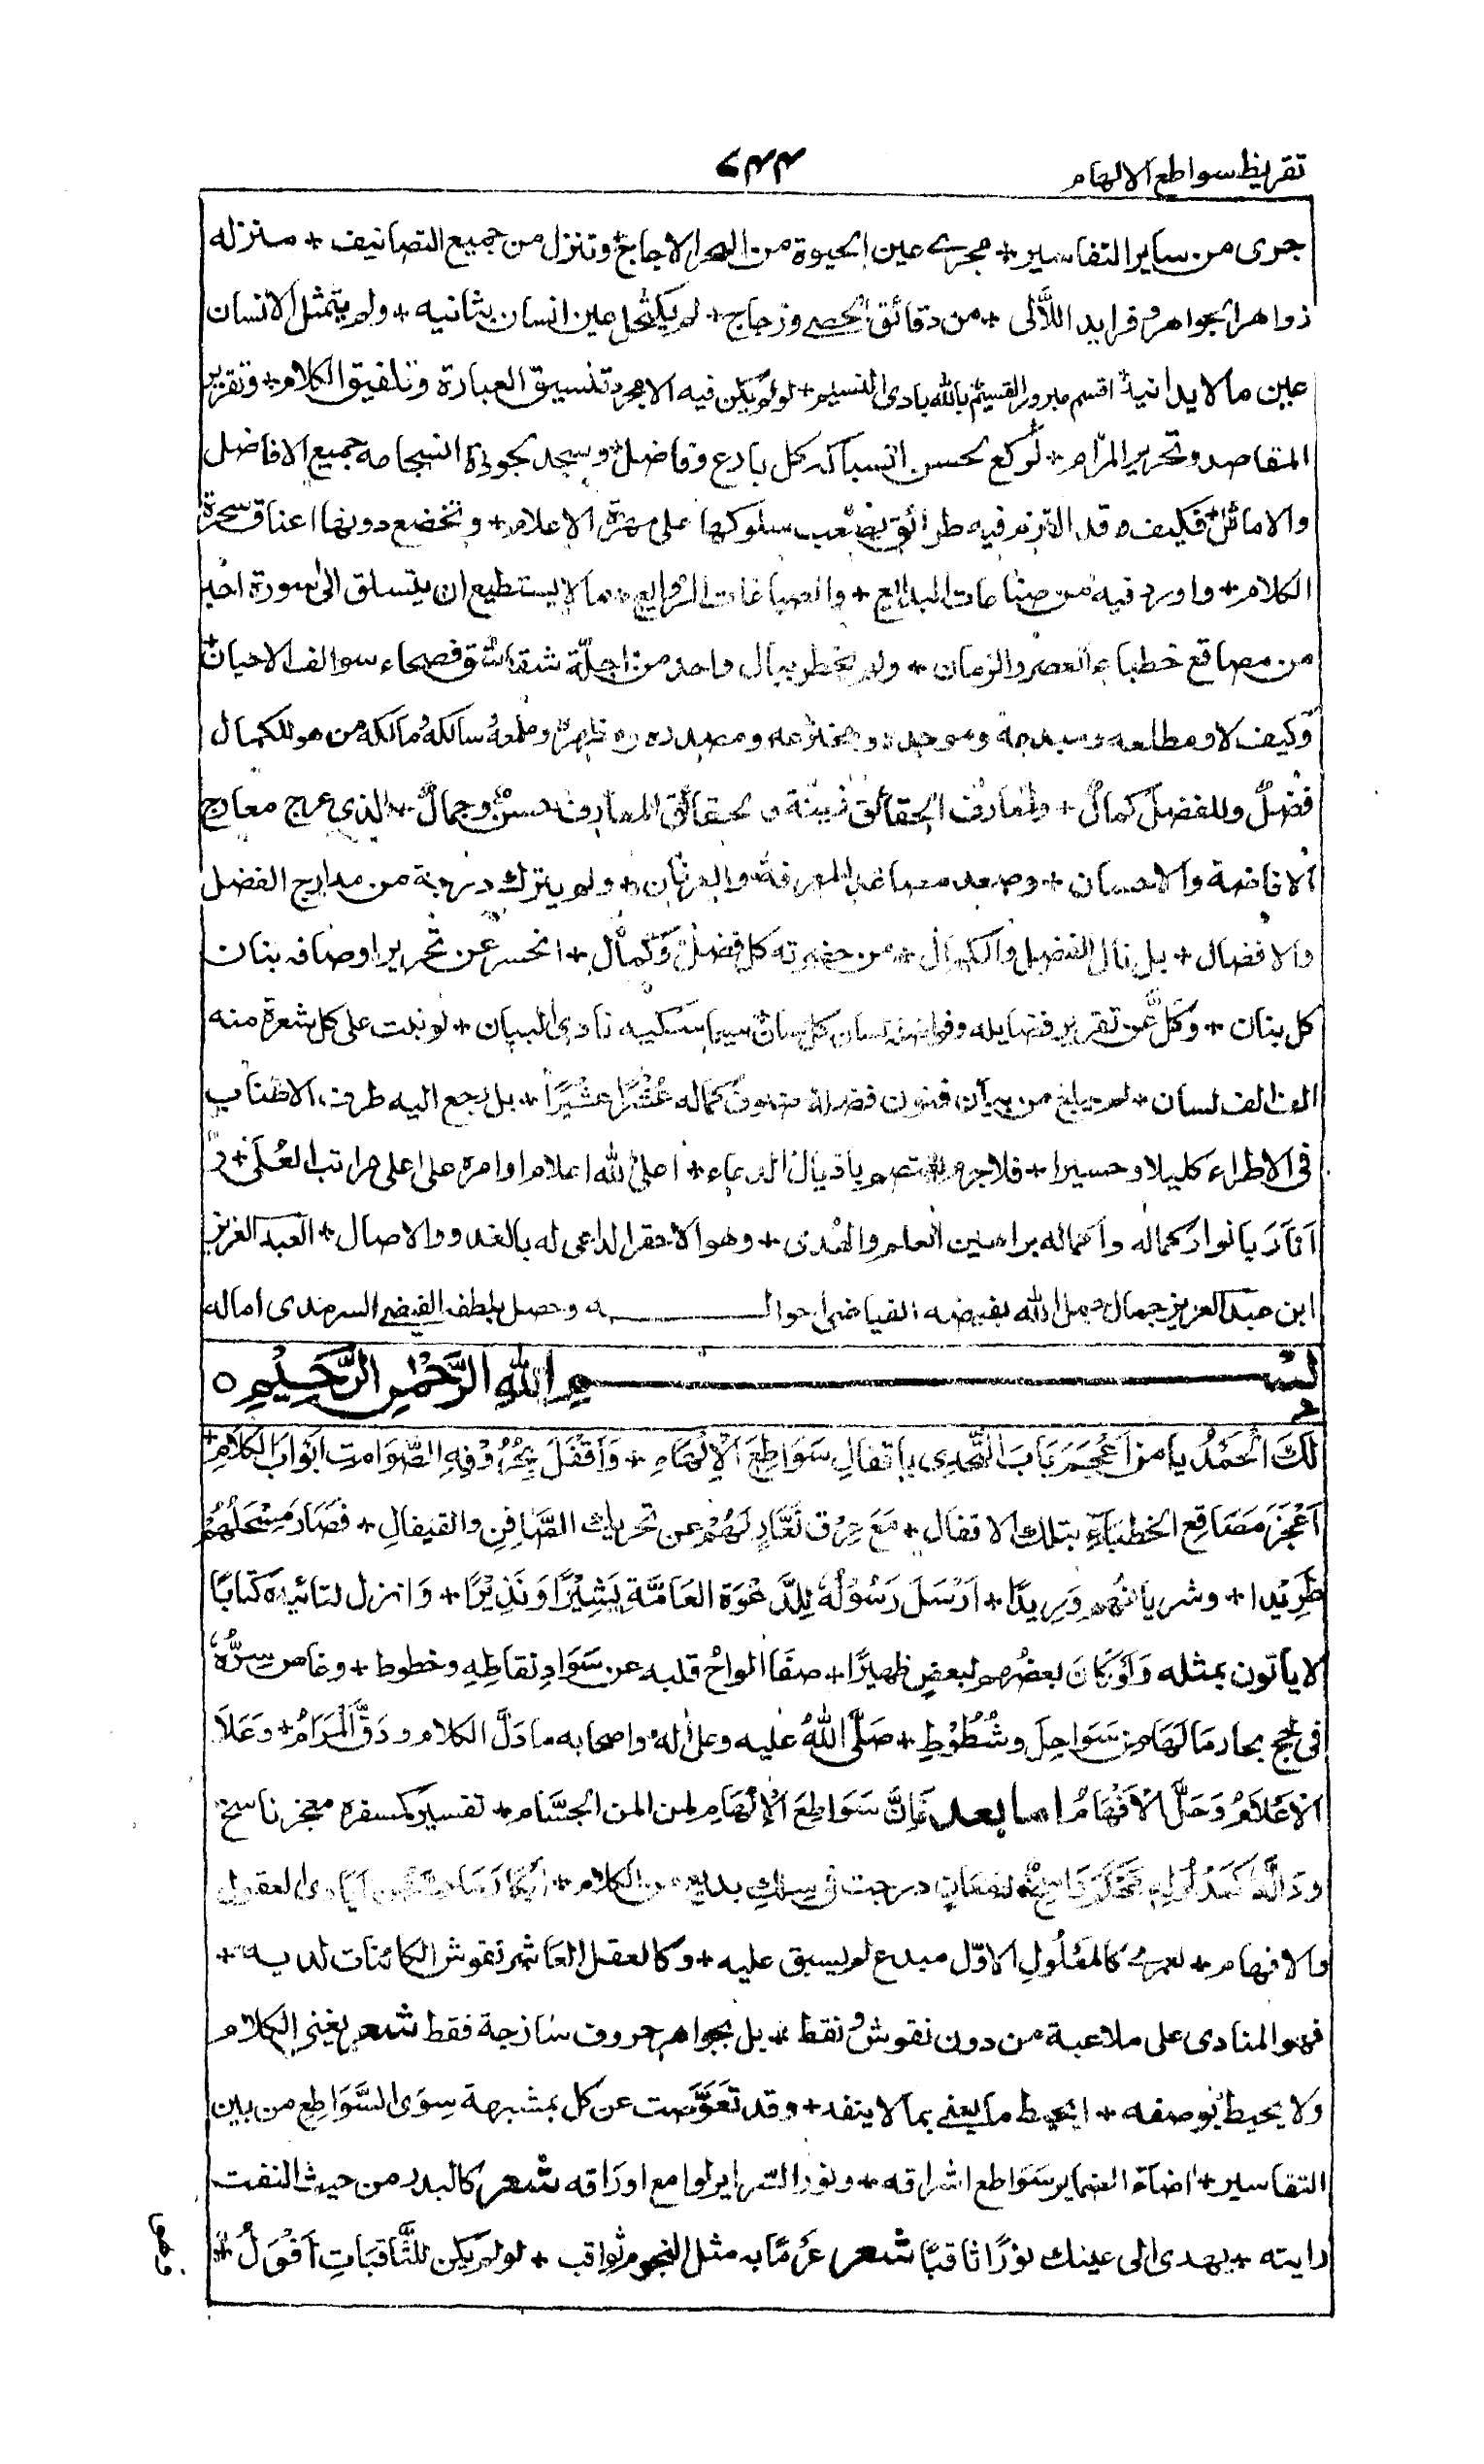 تقريظ سواطع الالهام
جرى من ساير التفاسير + مجرى عين الحيوة من البحر الاجاج + وتنزل من جميع التصانيف + منزله
زواهر الجواهر و فرايد اللآلى + من دقائق الحصى وزجاج + لم يكتحل عين انسان بثانيه + ولم يتمثل لانسان
عين ما لا يدانية اقسم مبرور القسيم بالله بادى النسيم + لو لم يكن فيه الا مجرد تنسيق العبارة وتلفيق الكلام + وتقرير
المقاصد وتحرير المرام + لركع لحسن انسباكه كل بارع وفاضل + وسجد لجودة انسجامه جميع الافاضل
والاماثل + فكيف وقد التزم فيه طرائق يصعب سلوكها على مهرة الاعلام + وتخضع دونها اعناق سحرة
الكلام + واورد فيه من صناعات البدايع + والصياغات الروايع ما لا يستطيع ان يتسلق الى سورة احد
من مصاقع خطباء العصر والزمان + ولم يخطر ببال واحد من اجلة فصحاء سوالف الاحيان +
وكيف لا ومطلعه ومبدعه وموجده ومخترعه ومصدره ومظهره سالكه مالكه من هو للكمال
فضل وللفضل كمال + ولمعارف الحقائق زينة ولحقائق المعارف حسن وجمال + الذى عرج معارج
الافاضة والاحسان + وصعد مصاعد المعرفة والعرفان + ولم يترك درجة من مدارج الفضل
والافضال + بل نال الفضل والكمال + من حضرته كل فضل وكمال + انحسر عن تحرير اوصافه بنان
كل بنان + وكل عن تقرير فضايله وفواضله لسان كل لسان نادى البيان + لو نبت على كل شعرة منه
الف الف لسان + لم يبلغ من بيان فنون فضله كماله عشرا عشيرا + بل رجع اليه طرف الاطناب
فى الاطراء كليلا وحسيرا + فلاجرم نعتصم باذيال الدعاء + اعلى الله اعلام اوامره على اعلى مراتب العلى + و
انار بانوار كماله واعماله براهين العلم والهدى + وهو الاحقر الداعى له بالغدو والاصال + العبد العزيز
ابن عبد العزيز جمال الله بفيضه الفياضى احواله وحصل بلطف الفيضى السرمدى اماله
بسم الله الرحمن الرحيم
لك الحمد يا من اعجم باب التحدى باقفال سواطع الالهام + واقفل بحروفه الصوامت ابواب الكلام +
اعجز مصاقع الخطباء بتلك الاقفال + مع عرق نعار لهم عن تحريك الصافن والقيفال + فصار مسحلهم
طريدا + وشريانهم وريدا + ارسل رسوله للدعوة العامة بشيرا ونذيرا + وانزل لتائيده كتابا
لا ياتون بمثله ولو كان بعضهم لبعض ظهيرا + صفا الواح قلبه عن سواد نقاطه وخطوط + وغاص سره
فى لجج بحار ما لها من سواحل وشطوط + صلى الله عليه وعلى اله واصحابه ما دل الكلام ودق المرام + وعلا
الاعلام وحل الافهام اما بعد فان سواطع الالهام لمن المن الجسام + تفسير كمسفره معجز ناسخ
درجت فى سلك بديع من الكلام + ايادى العقول
والافهام + لعمرى كالمعلول الاول مبدع لم يسبق عليه + وكالعقل العاشر نقوش الكائنات لديه +
فهو المنادى على ملاعبة من دون نقوش ونقط + بل بجواهر حروف سازجة فقط شعر يفنى الكلام
ولا يحيط بوصفه + ايحيط ما يفنى بما لا ينفد + وقد تعوضت عن كل بمشبهة سوى السواطع من بين
التفاسير + اضاءة الضماير سواطع اشراقه + ونور السراير لوامع اوراقه شعر كالبدر من حيث التفت
رايته + يهدى الى عينك نورا ثاقبا شعر عزماته مثل النجوم ثواقب + لو لم يكن للثاقبات افول +